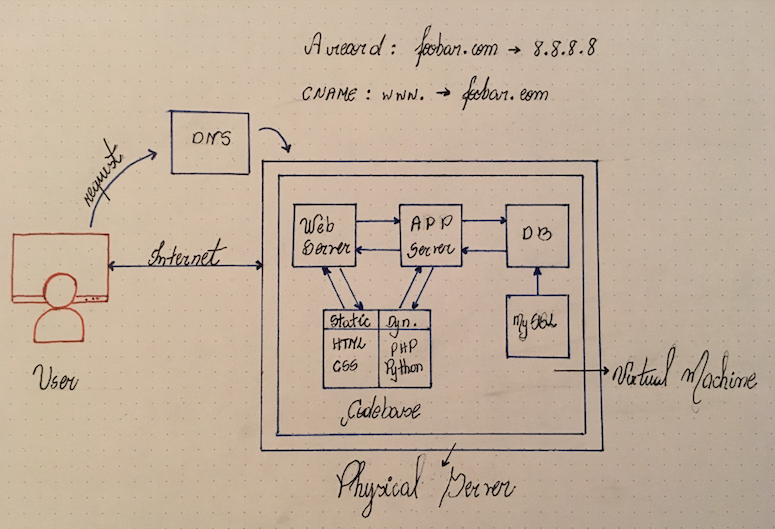 A record: foobar.com → 8.8.8.8
CNAME: www. → foobar.com
DNS
request
Web
Server
APP
Server
DB
Internet
Static
Dyn.
HTML
CSS
PHP
Python
MySQL
User
Codebase
Virtual Machine
Physical Server